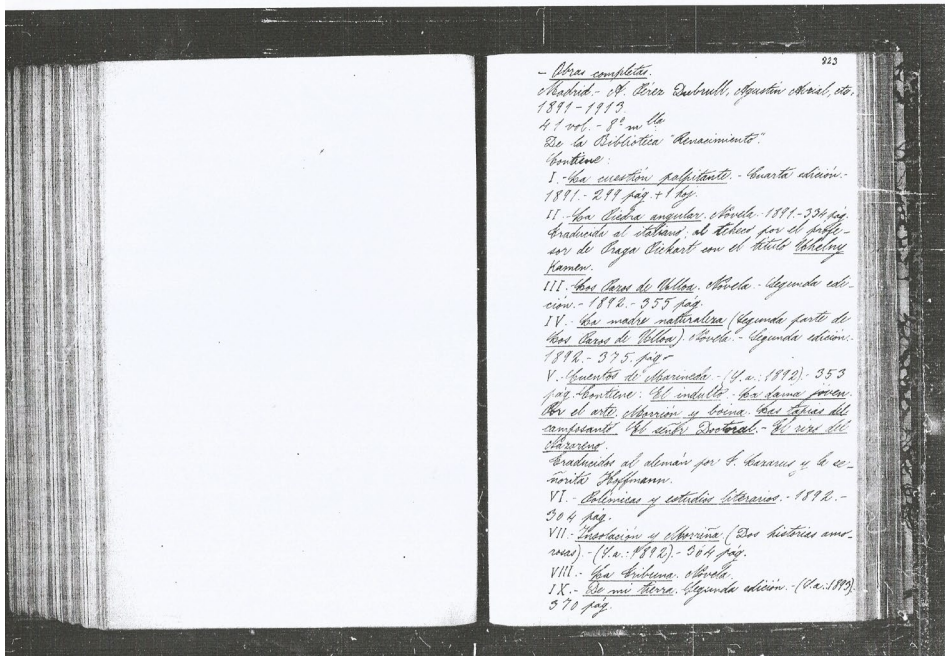 823
- Obras completas.
Madrid.- A. Pérez Dubrull, Agustín Avrial, etc,
1891-1913.
41 vol. - 8º m lla
De la Biblioteca "Renacimiento".
Contiene:
I.- La cuestión palpitante. - Cuarta edición.-
1891.- 299 pág. + 1 hoj.
II.- La Piedra angular. Novela. 1891.- 334 pág.
Traducida al italiano; al tcheco por el profe-
sor de Praga Pickart con el título Uhelny
Kamen.
III.- Los Pazos de Ulloa. Novela.- Segunda edi-
ción.- 1892.- 355 pág.
IV.- La madre naturaleza (Segunda parte de
Los Pazos de Ulloa). Novela.- Segunda edición.-
1892.- 375. pág-
V.- Cuentos de Marineda.- (S.a.: 1892).- 353
pág.- Contiene: El indulto.- La dama joven.
Por el arte. Morrión y boina. Las tapias del
camposanto. El señor Doctoral.- El rizo del
Nazareno.
Traducidos al alemán por S. Lazarus y la se-
ñorita Hoffmann.
VI.- Polémicas y estudios literarios.- 1892.-
304 pág.
VII.- Insolación y Morriña (Dos historias amo-
rosas).- (S.a.: 1892).- 364 pág.
VIII.- La Tribuna. Novela.
IX.- De mi tierra. Segunda edición.- (S.a.: 1893).
370 pág.